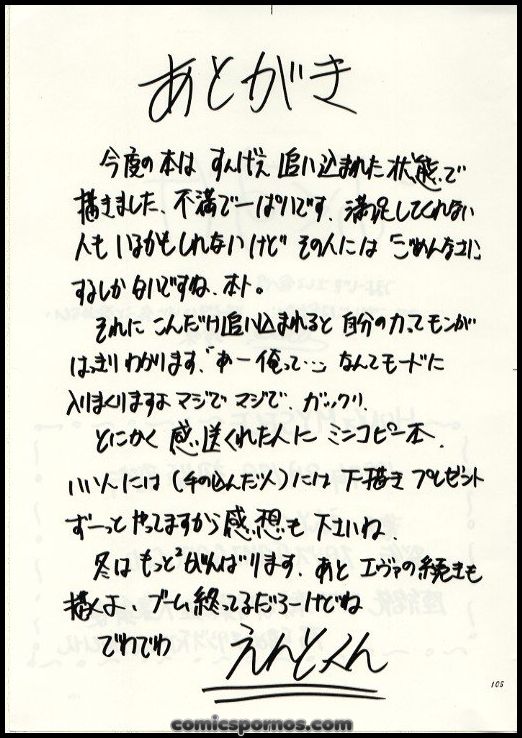 あとがき
今度の本は すんげえ 追い込まれた 状態で
描きました、不満で一ぱいです。満足してくれない
人も いるかもしれないけど その人には ごめんなさい
するしか ないですね、ホト。
それに こんだけ追い込まれると 自分の力ってモンが
はっきり わかります。「あー俺って…」なんてモードに
入りまくりますよ マジで マジで、ガックリ
とにかく 感送くれた人に ミニコピー本、
いい人には(手の込んだ人)には 下描き プレゼント
ずーっと やってますから 感想も 下さいね、
冬は もっと²がんばります、あと エヴァの続きも
描くよ、ブーム終ってるだろーけどね
でわでわ えんどくん
105
comicspornos.com